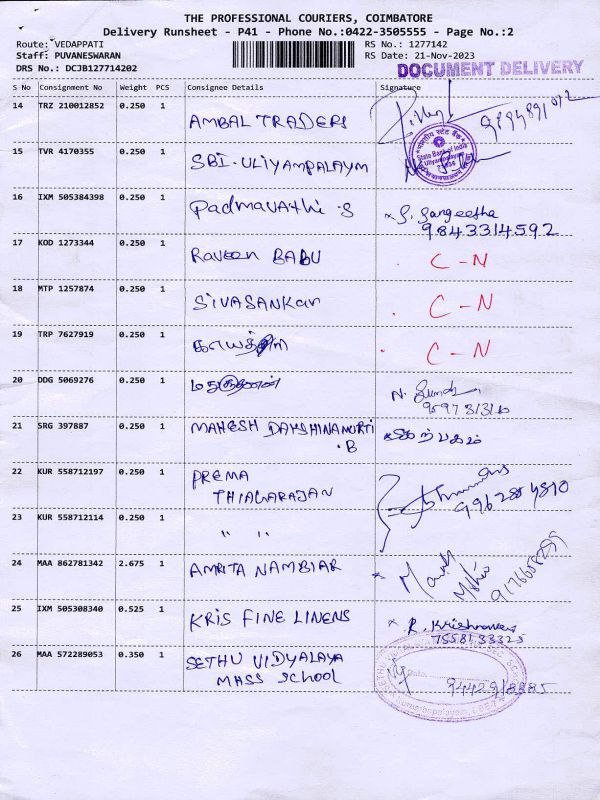 THE PROFESSIONAL COURIERS, COIMBATORE
Delivery Runsheet - P41 - Phone No.:0422-3505555 - Page No.:2
Route: VEDAPPATI RS No.: 1277142
Staff: PUVANESWARAN RS Date: 21-Nov-2023
DRS No.: DCJB127714202 DOCUMENT DELIVERY
S No Consignment No Weight PCS Consignee Details Signature
14 TRZ 210012852 0.250 1 AMBAL TRADERS
15 TVR 4170355 0.250 1 SBI-ULIYAMPALAYM
State Bank of India
16 IXM 505384398 0.250 1 Padmavathi S x S. Sangeetha
9843314592
17 KOD 1273344 0.250 1 Raveen BABU C-N
18 MTP 1257874 0.250 1 SIVASANKAR C-N
19 TRP 7627919 0.250 1 C-N
20 DDG 5069276 0.250 1
21 SRG 397887 0.250 1 MAHESH DAKSHINAMURTI
.B
22 KUR 558712197 0.250 1 PREMA
THIAGARAJAN
9962854810
23 KUR 558712114 0.250 1 " "
24 MAA 862781342 2.675 1 AMRITA NAMBIAR
25 IXM 505308340 0.525 1 KRIS FINE LINENS x R. Krishnaveni
7558133325
26 MAA 572289053 0.350 1 SETHU VIDYALAYA
MASS School
Date: